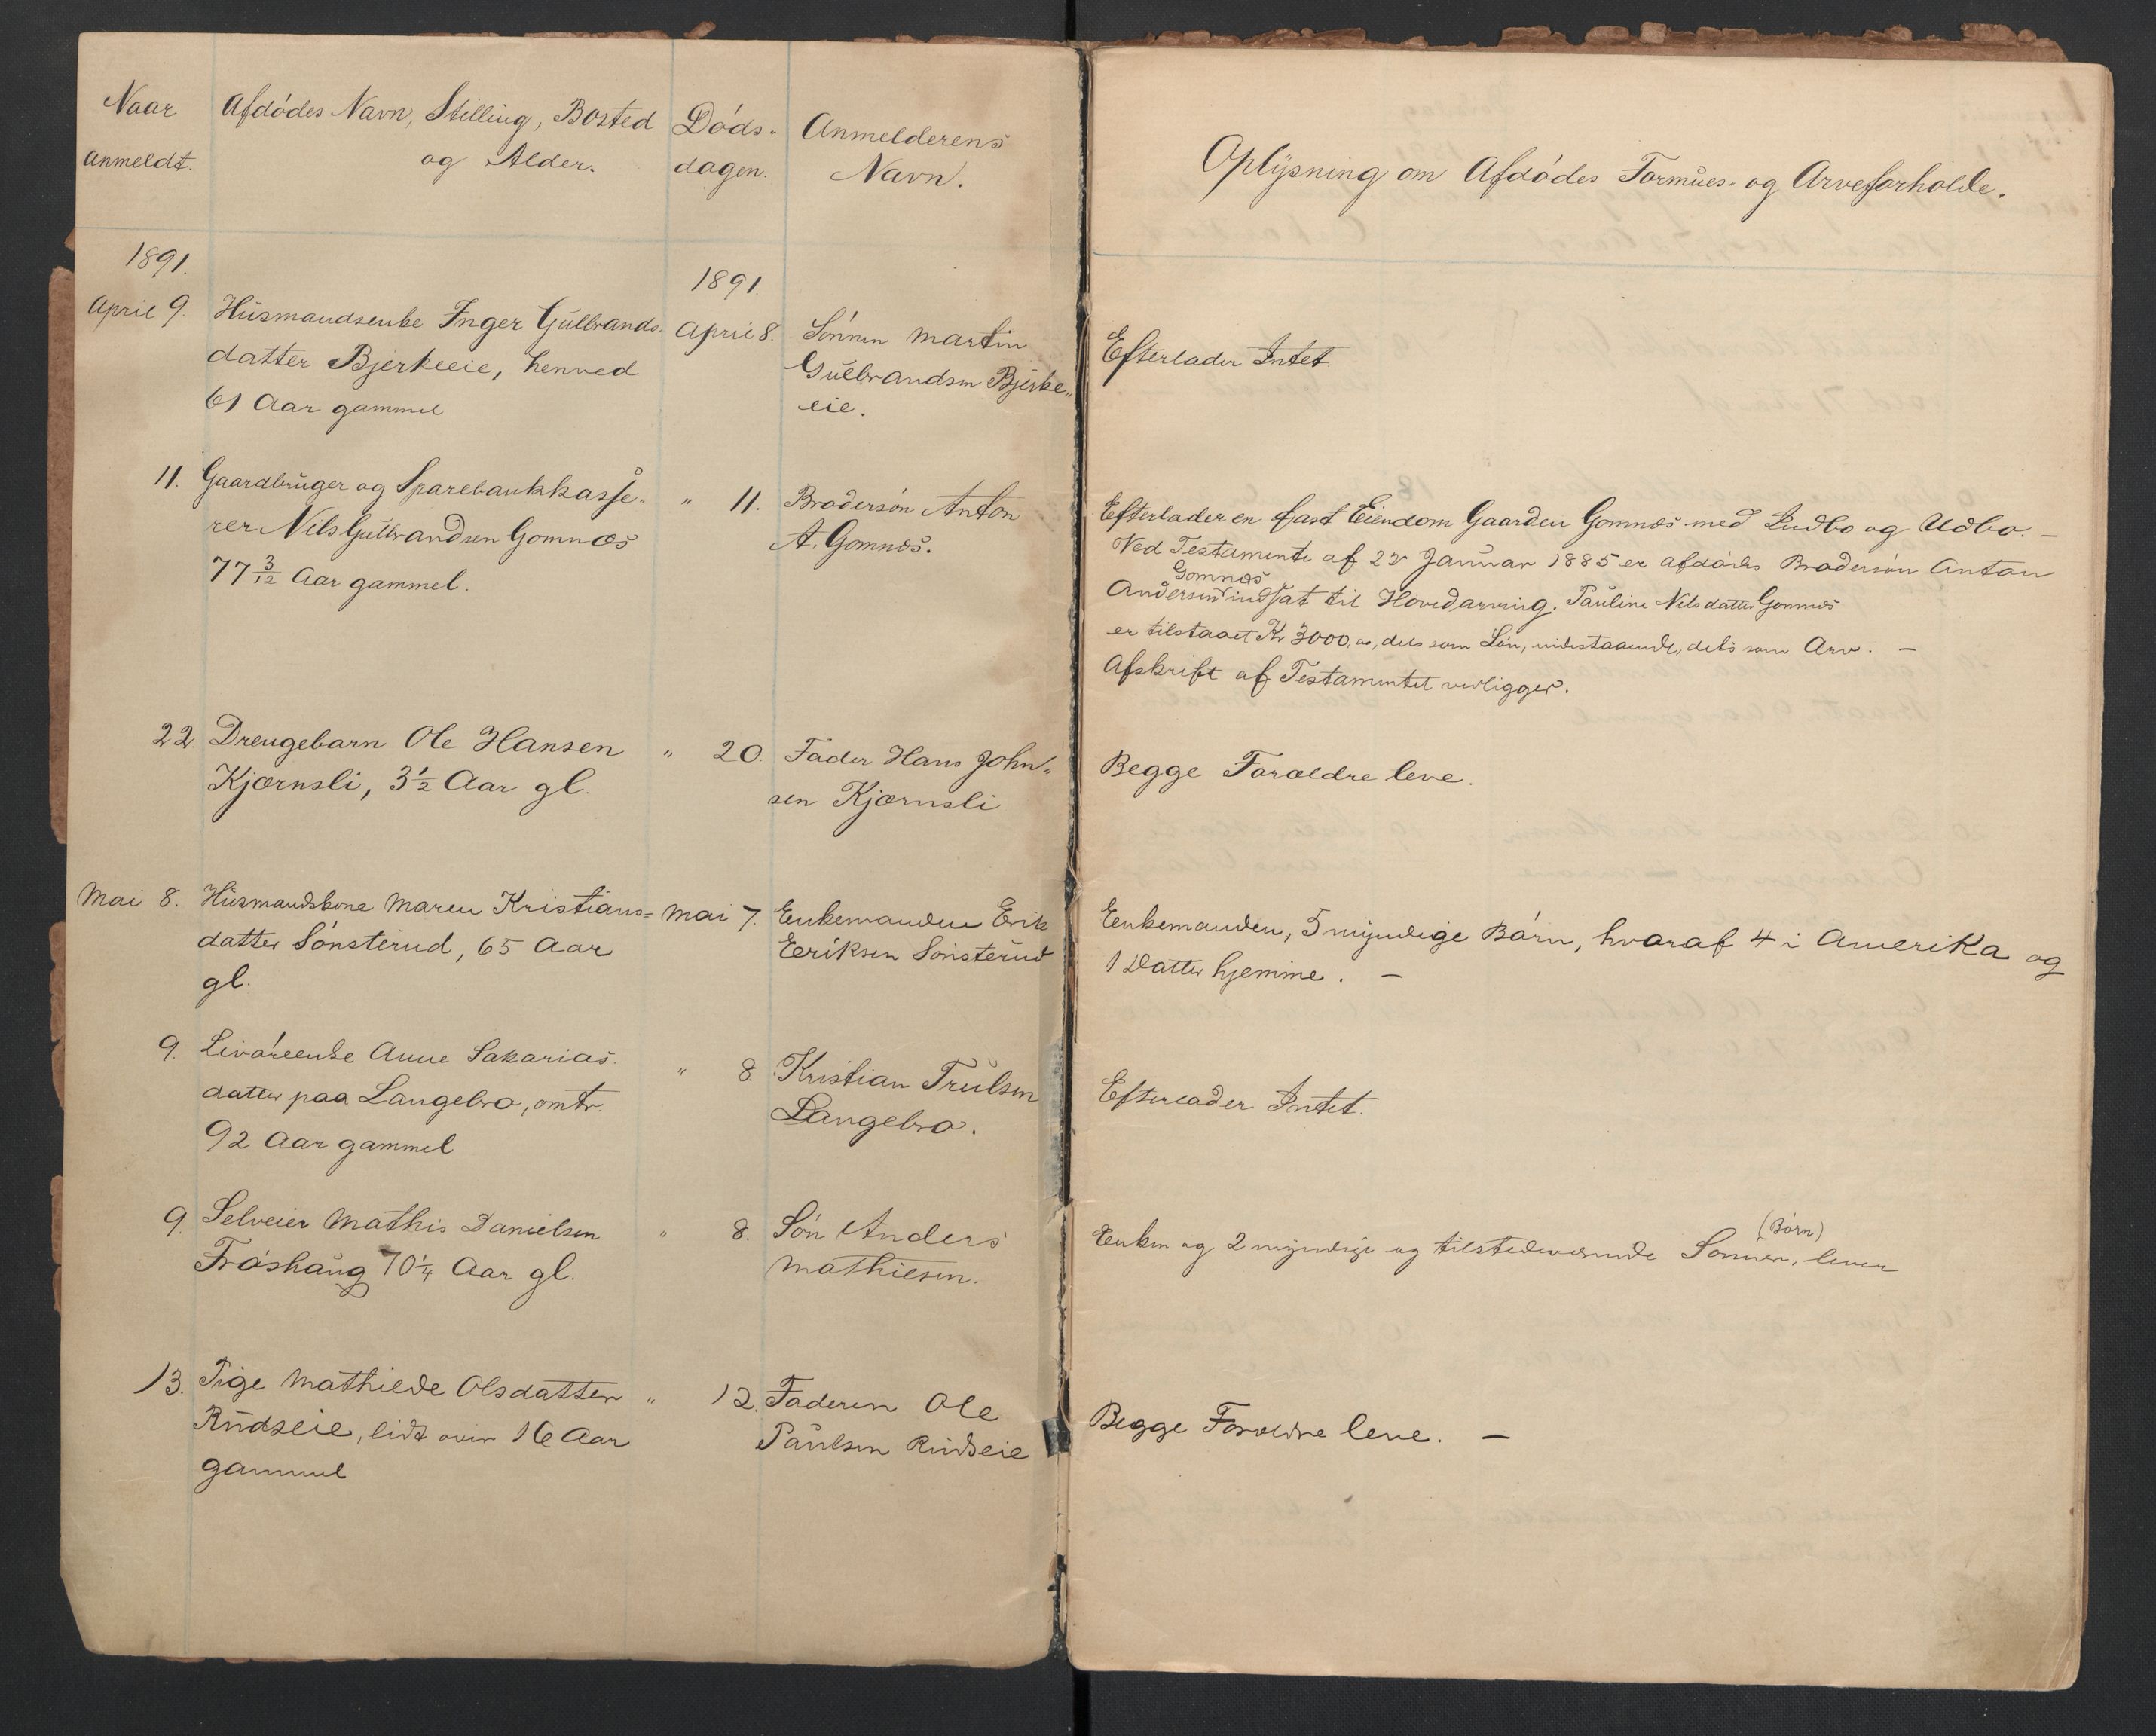 Naar
Anmeldt.
Afdódes Navn, Stilling, Bosted
og Alder.
Døds-
dagen.
Anmelderens
Navn.
Oplysning om Afdódes Formues- og Arveforholde.
1891.
1891
April 9.
Husmandsenke Inger Gulbrands-
datter Bjerkeeie, henved
61 Aar gammel
April 8.
Sónnen Martin
Gulbrandsen Bjerke-
eie.
Efterlader Intet
11.
Gaardbruger og Sparebankkasse-
rer Nils Gulbrandsen Gomnæs
77 3/12 Aar gammel.
" 11.
Brodersón Anton
A. Gomnæs.
Efterlader en fast Eiendom Gaarden Gomnæs med Indbo og Udbo. —
Ved Testamente af 22 Januar 1885 er afdódes Brodersón Anton
Gomnæs
Andersen indsat til Hovedarving. Pauline Nilsdatter Gomnæs
er tilstaaet Kr 3000,00, dels som Lón, indestaaende, dels som Arv. —
Afskrift af Testamentet vedligger.
22.
Drengebarn Ole Hansen
Kjærnsli, 3 1/2 Aar gl.
" 20.
Fader Hans John-
sen Kjærnsli
Begge Forældre leve.
Mai 8.
Husmandskone Maren Kristians-
datter Sónsterud, 65 Aar
gl.
Mai 7.
Enkemanden Erik
Eriksen Sónsterud
Enkemanden, 5 myndige Bórn, hvoraf 4 i Amerika og
1 Datter hjemme. —
9.
Livóreenke Anne Sakarias-
datter paa Langebro, omtr.
92 Aar gammel
" 8.
Kristian Trulsen
Langebro.
Efterlader Intet.
9.
Selveier Mathis Danielsen
Fróshaug 70 1/4 Aar gl.
" 8.
Són Anders
Mathiesen.
(Bórn)
Enken og 2 myndige og tilstedeværende Sónner, lever
13.
Pige Mathilde Olsdatter
Rudseie, lidt over 16 Aar
gammel
" 12.
Faderen Ole
Paulsen Rudseie
Begge Forældre leve. —